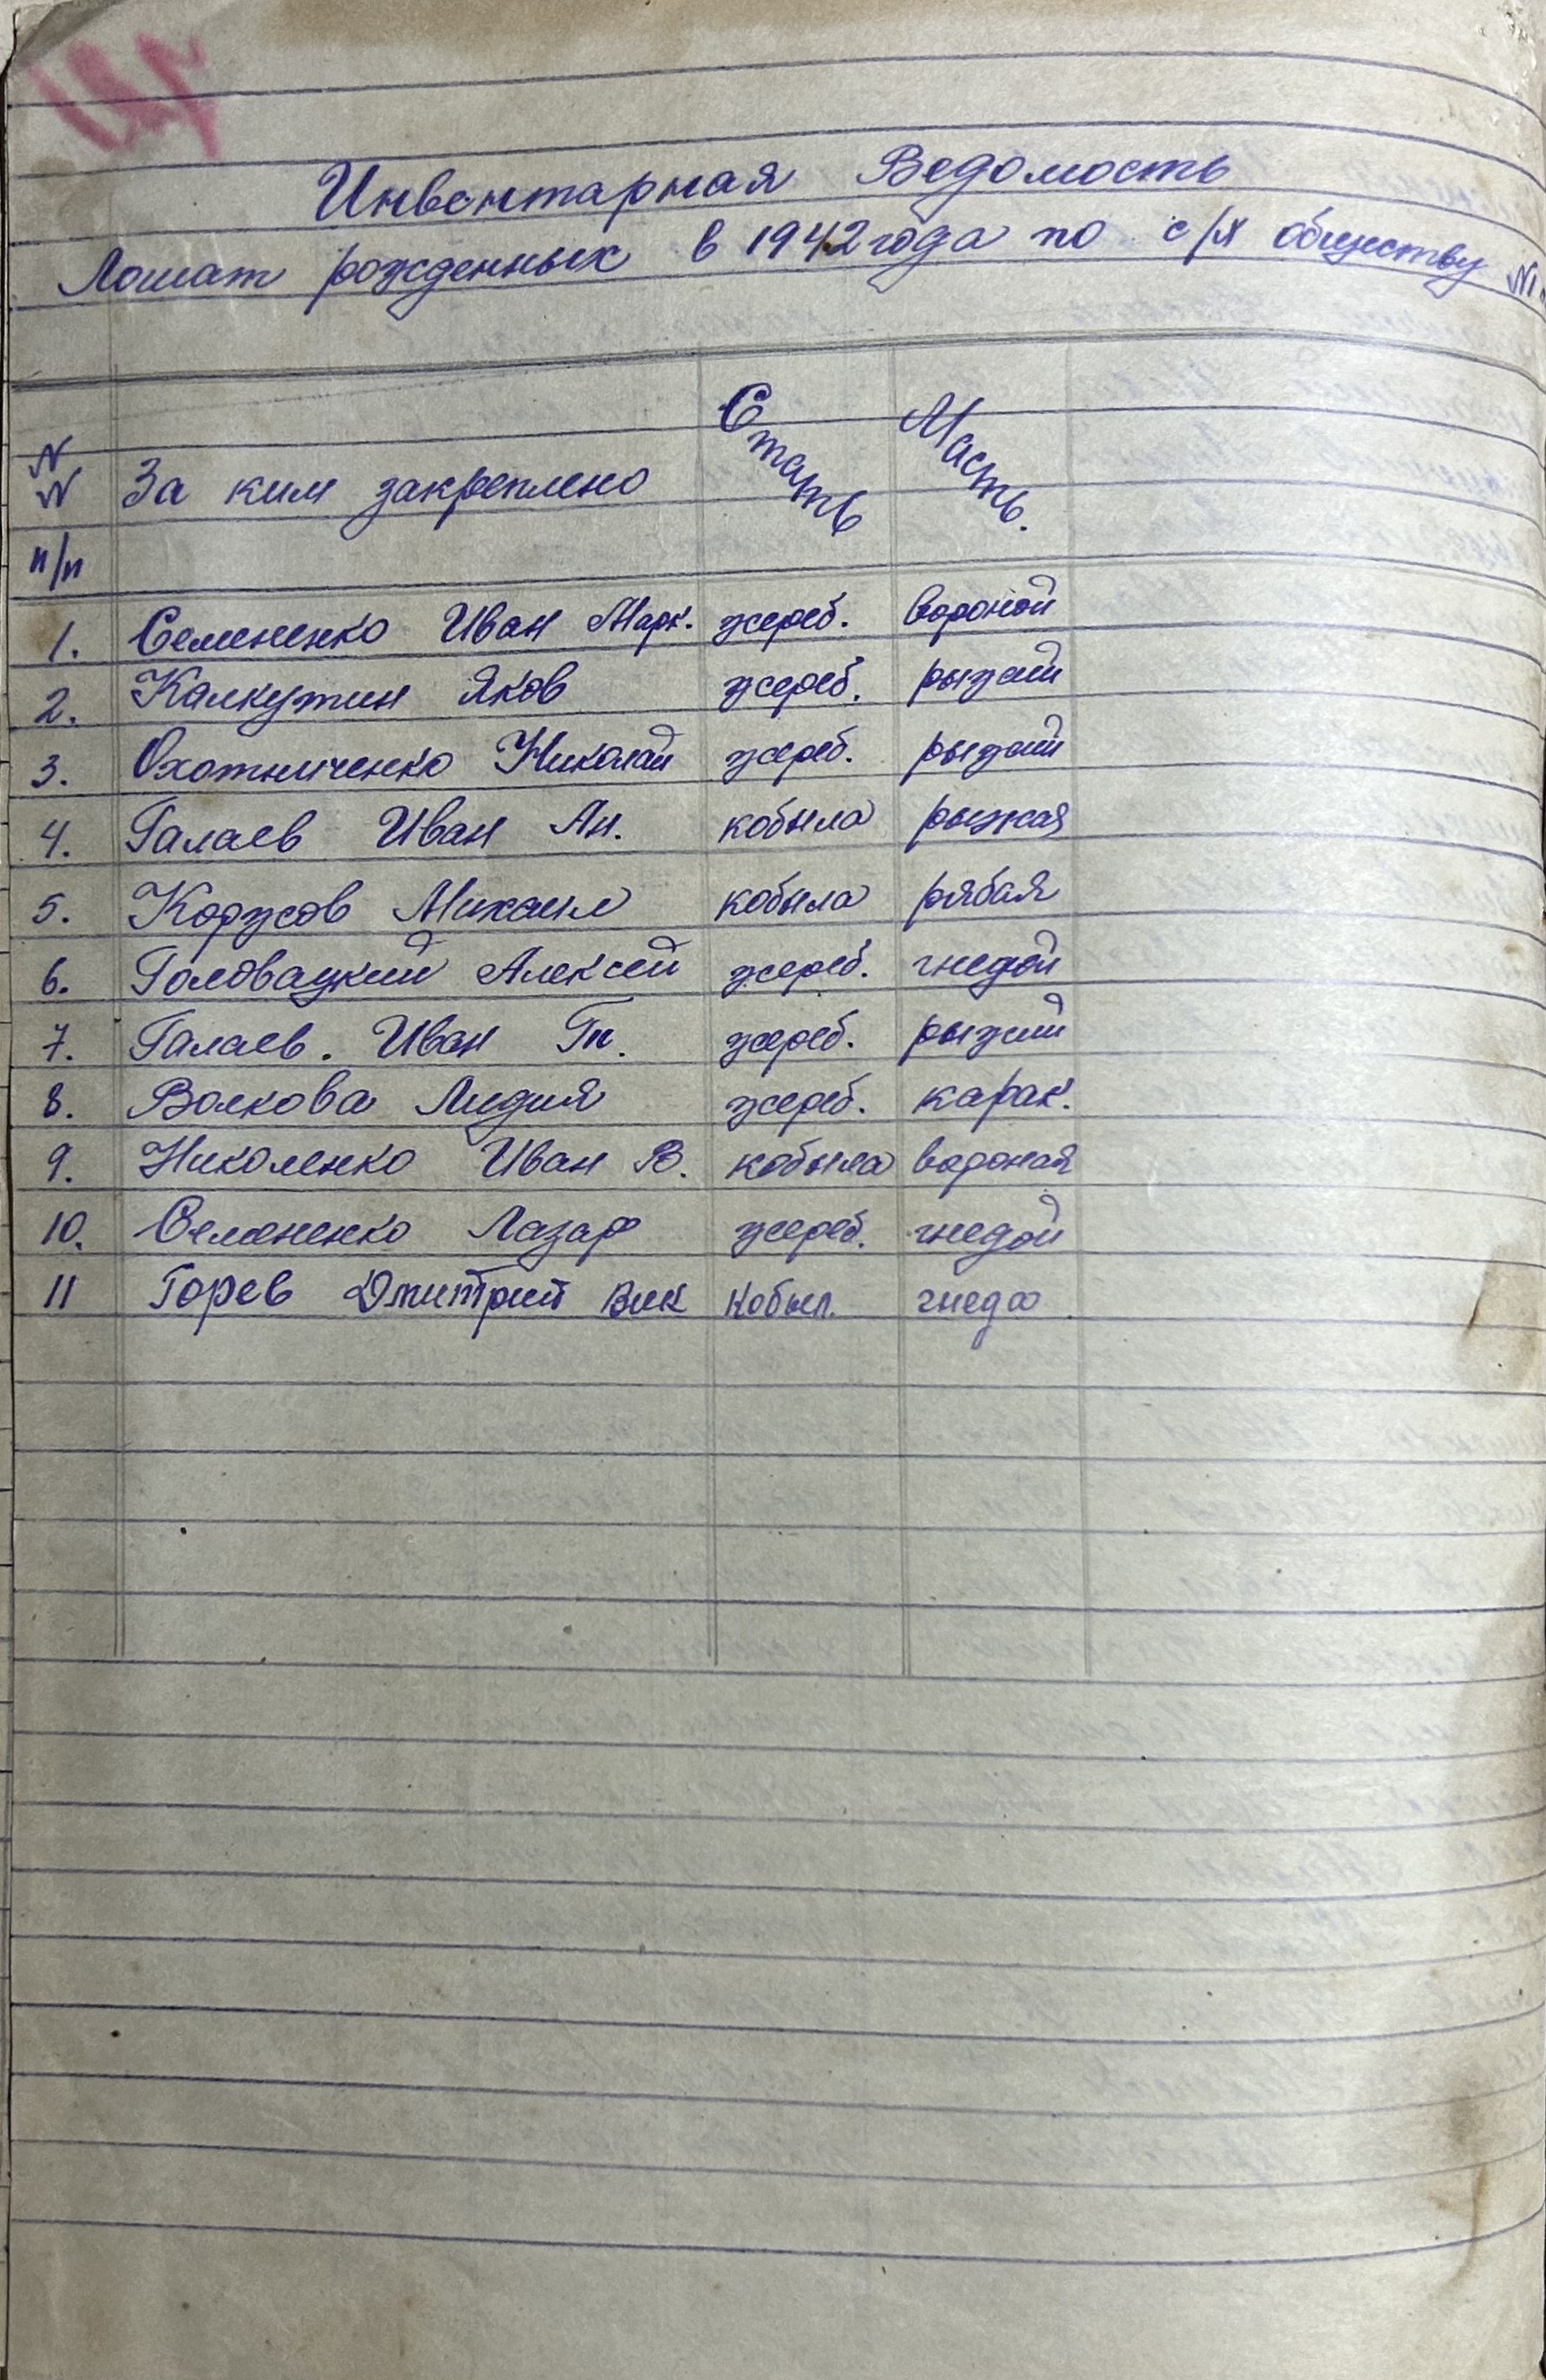 Инвентарная Ведомость
Лошат рожденных в 1942 года по с/х обществу №1
N N п/п За ким закреплено Стать Масть.
1. Семененко Иван Марк. жереб. вороной
2. Калкутин Яков жереб. рыжий
3. Охотниченко Николай жереб. рыжий
4. Галаев Иван Ан. кобыла рыжая
5. Коржов Михаил кобыла рябая
6. Головацкий Алексей жереб. гнедой
7. Галаев. Иван Гн. жереб. рыжий
8. Волкова Лидия жереб. карак.
9. Николенко Иван В. кобыла вороная
10. Семененко Лазар жереб. гнедой
11 Горев Дмитрий Вик кобыл. гнедо